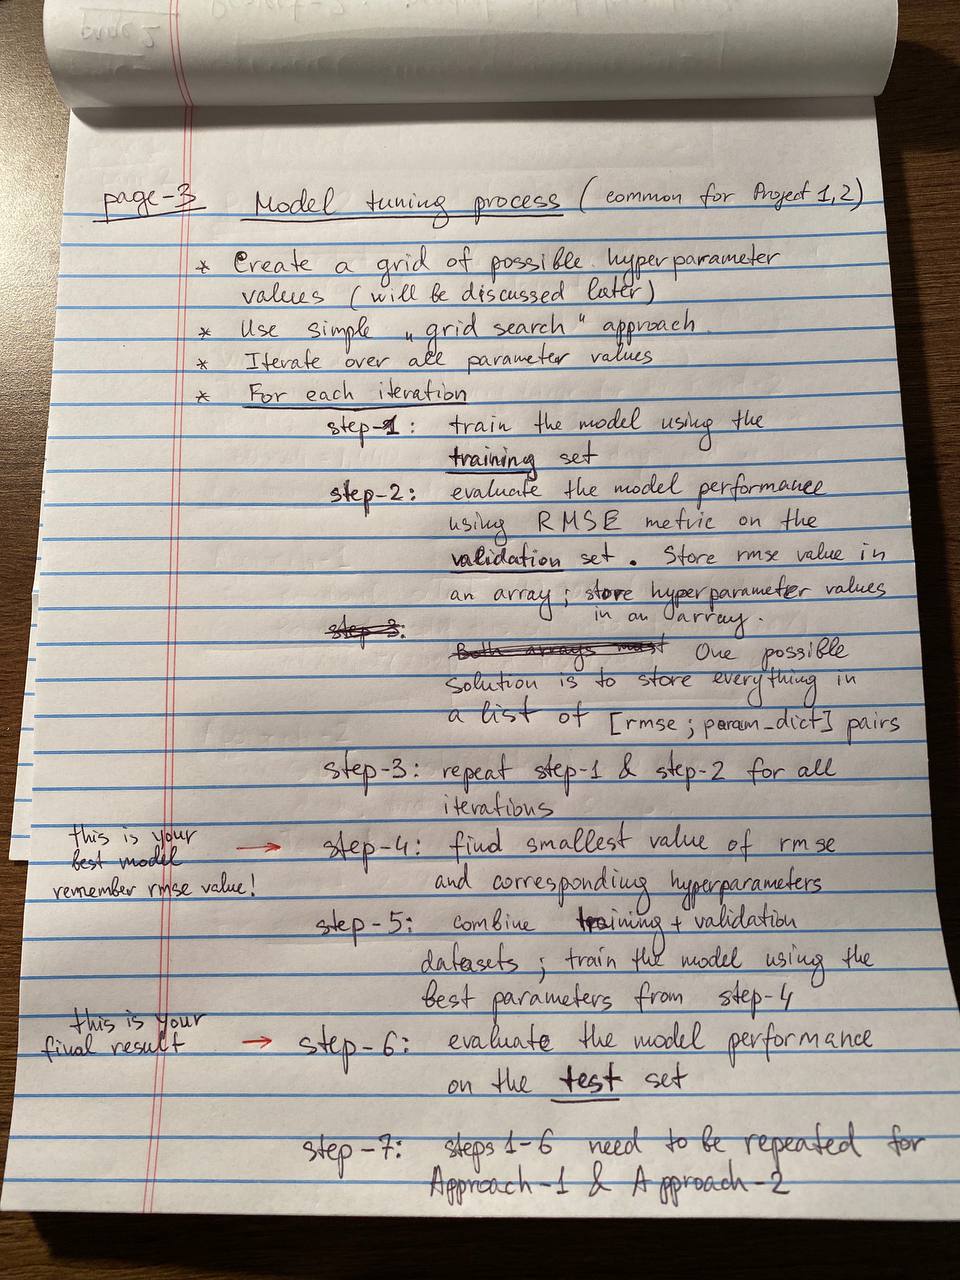 page-3 Model tuning process (common for Project 1,2)
* Create a grid of possible hyperparameter
values (will be discussed later)
* Use simple „grid search" approach
* Iterate over all parameter values
* For each iteration
step-1: train the model using the
training set
step-2: evaluate the model performance
using RMSE metric on the
validation set. Store rmse value in
an array; store hyperparameter values
in an array.
step 3:
Both arrays must One possible
solution is to store everything in
a list of [rmse; param_dict] pairs
step-3: repeat step-1 & step-2 for all
iterations
this is your
best model
remember rmse value!
→ step-4: find smallest value of rmse
and corresponding hyperparameters
step-5: combine training + validation
datasets; train the model using the
best parameters from step-4
this is your
final result
→ step-6: evaluate the model performance
on the test set
step-7: steps 1-6 need to be repeated for
Approach-1 & Approach-2